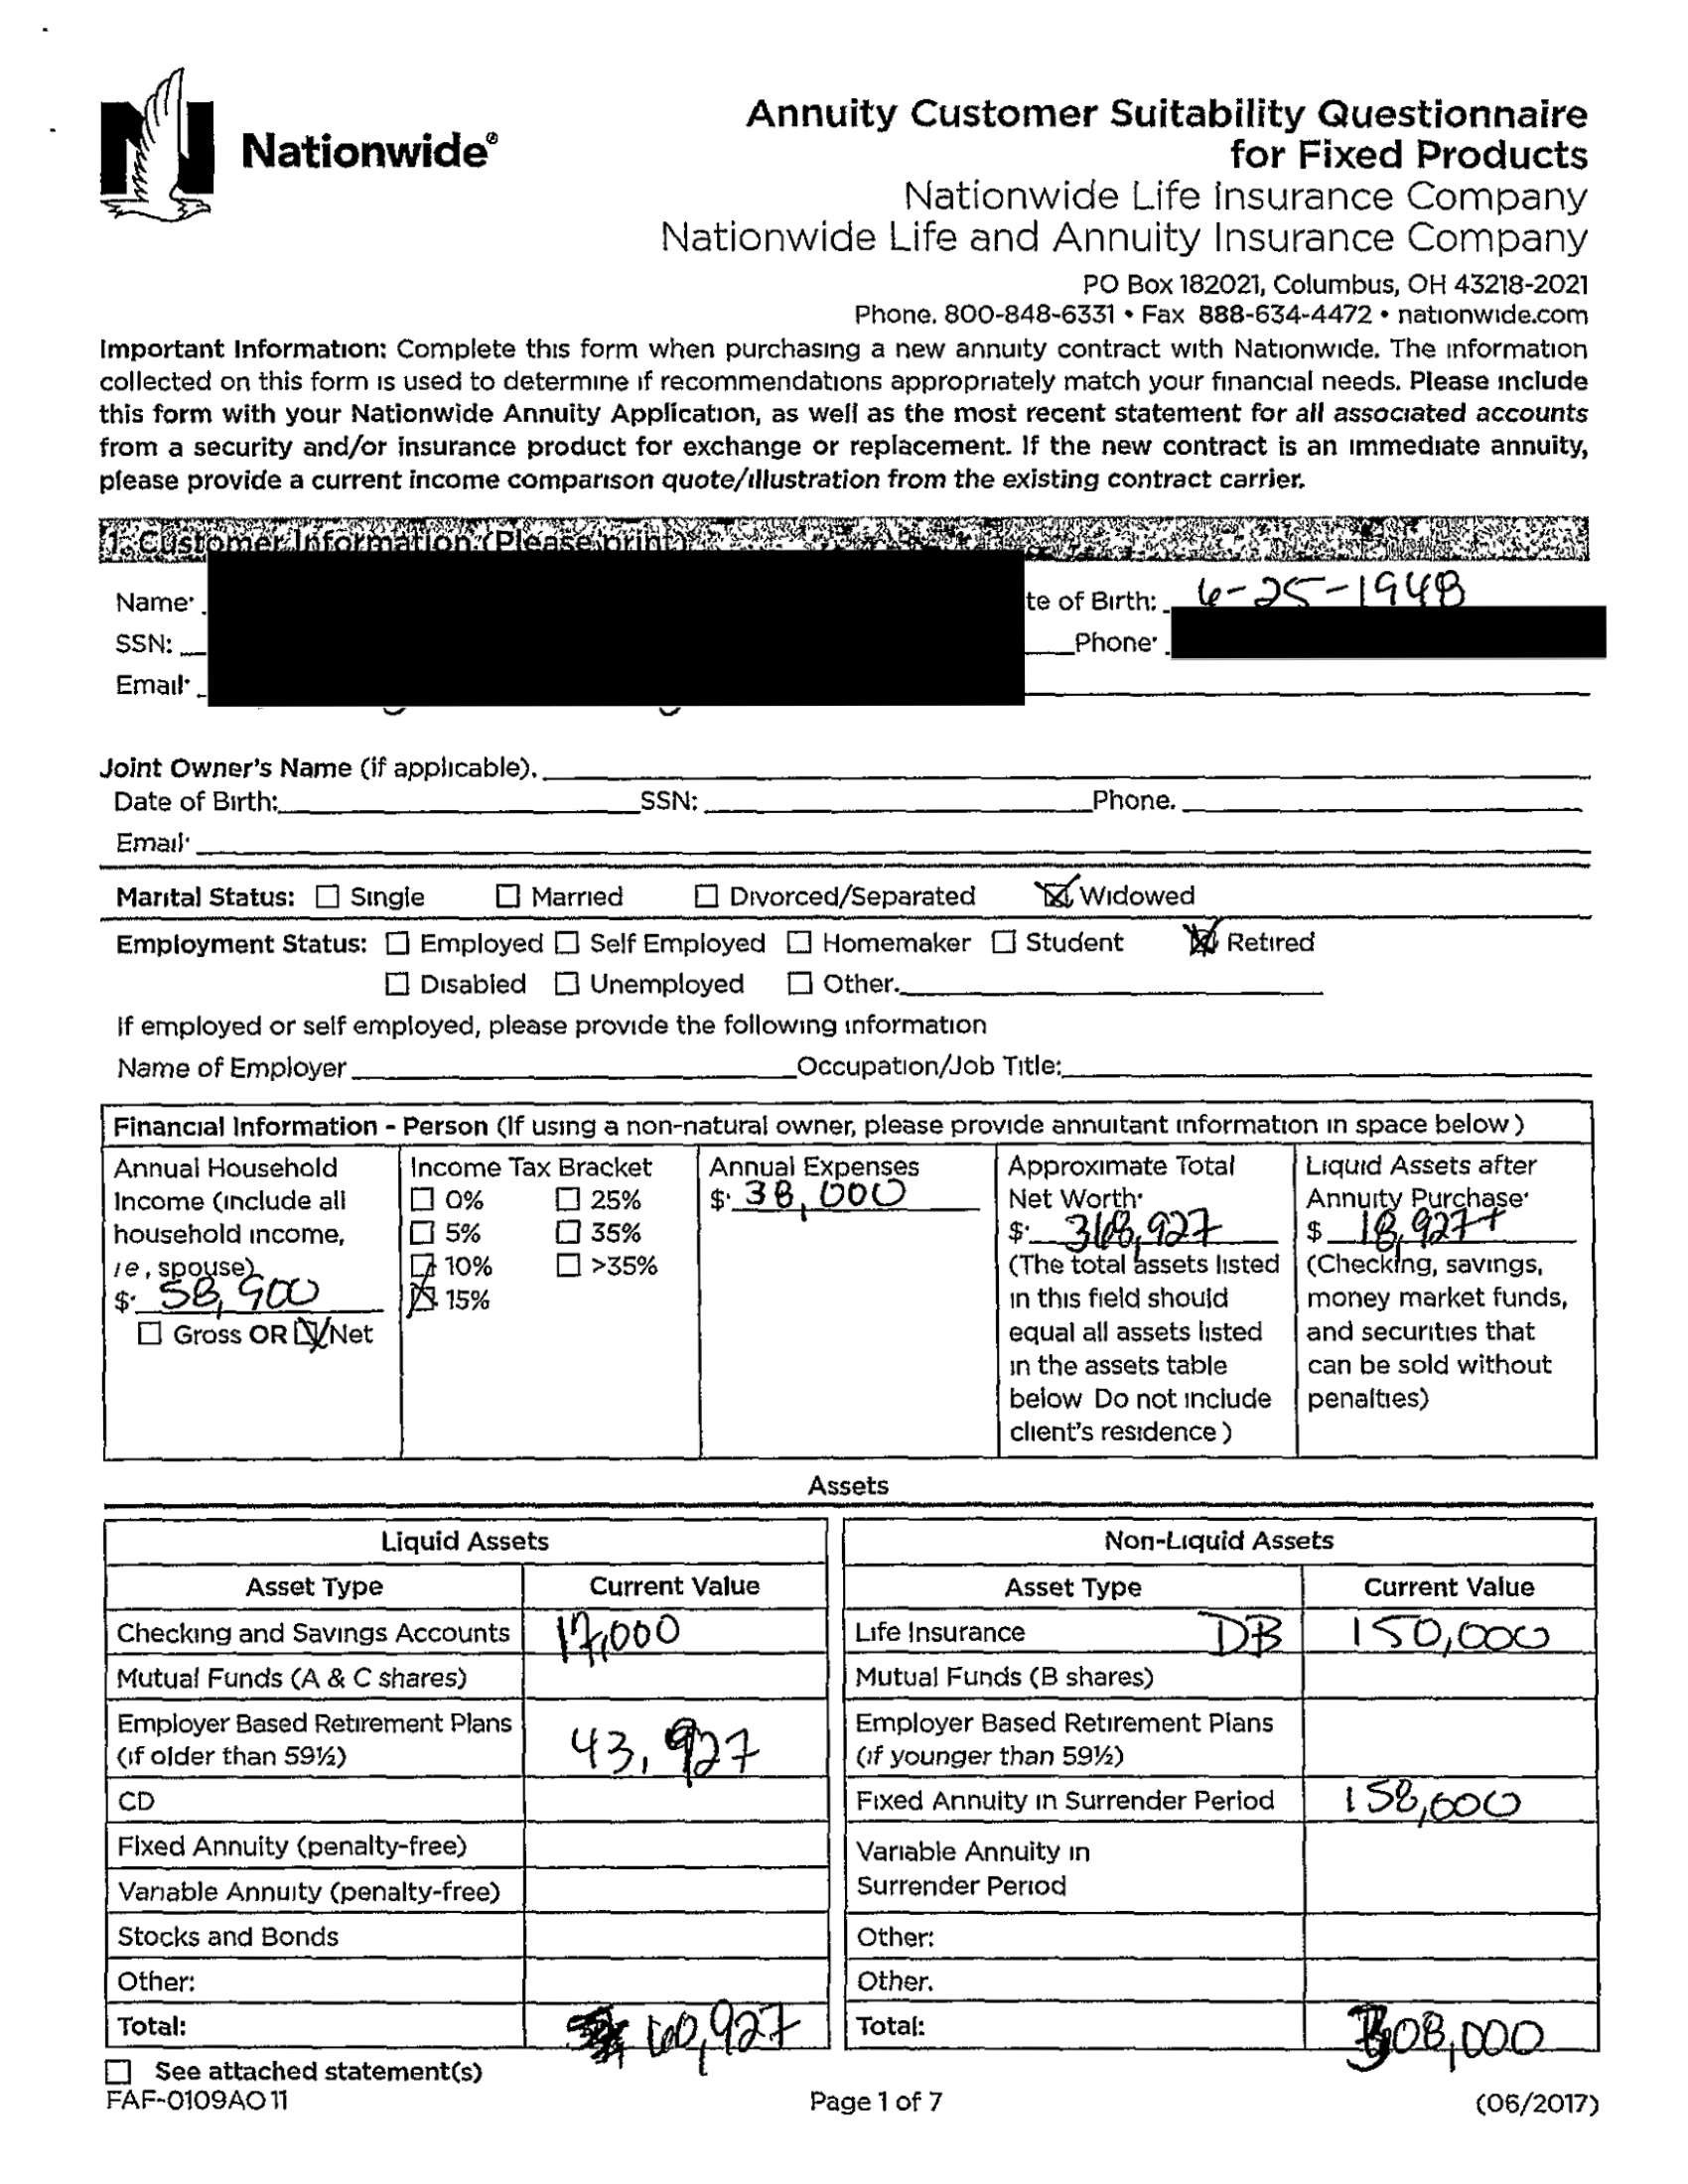 Nationwide®
Annuity Customer Suitability Questionnaire
for Fixed Products
Nationwide Life Insurance Company
Nationwide Life and Annuity Insurance Company
PO Box 182021, Columbus, OH 43218-2021
Phone. 800-848-6331 • Fax 888-634-4472 • nationwide.com
Important Information: Complete this form when purchasing a new annuity contract with Nationwide. The information
collected on this form is used to determine if recommendations appropriately match your financial needs. Please include
this form with your Nationwide Annuity Application, as well as the most recent statement for all associated accounts
from a security and/or insurance product for exchange or replacement. If the new contract is an immediate annuity,
please provide a current income comparison quote/illustration from the existing contract carrier.
1. Customer Information (Please print)
Name: te of Birth: 6-25-1948
SSN: Phone:
Email:
Joint Owner's Name (if applicable).
Date of Birth: SSN: Phone.
Email:
Marital Status: ☐ Single ☐ Married ☐ Divorced/Separated ☒ Widowed
Employment Status: ☐ Employed ☐ Self Employed ☐ Homemaker ☐ Student ☒ Retired
☐ Disabled ☐ Unemployed ☐ Other.
If employed or self employed, please provide the following information
Name of Employer Occupation/Job Title:
Financial Information - Person (If using a non-natural owner, please provide annuitant information in space below)
Annual Household
Income (include all
household income,
ie, spouse)
$: 58,900
☐ Gross OR ☒ Net
Income Tax Bracket
☐ 0% ☐ 25%
☐ 5% ☐ 35%
☐ 10% ☐ >35%
☒ 15%
Annual Expenses
$: 38,000
Approximate Total
Net Worth:
$: 368,927
(The total assets listed
in this field should
equal all assets listed
in the assets table
below Do not include
client's residence)
Liquid Assets after
Annuity Purchase:
$ 18,927
(Checking, savings,
money market funds,
and securities that
can be sold without
penalties)
Assets
Liquid Assets
Asset Type Current Value
Checking and Savings Accounts 17,000
Mutual Funds (A & C shares)
Employer Based Retirement Plans
(if older than 59½) 43,927
CD
Fixed Annuity (penalty-free)
Variable Annuity (penalty-free)
Stocks and Bonds
Other:
Total: 60,927
☐ See attached statement(s)
Non-Liquid Assets
Asset Type Current Value
Life Insurance DB 150,000
Mutual Funds (B shares)
Employer Based Retirement Plans
(if younger than 59½)
Fixed Annuity in Surrender Period 158,000
Variable Annuity in
Surrender Period
Other:
Other.
Total: 308,000
FAF-0109AO 11 Page 1 of 7 (06/2017)